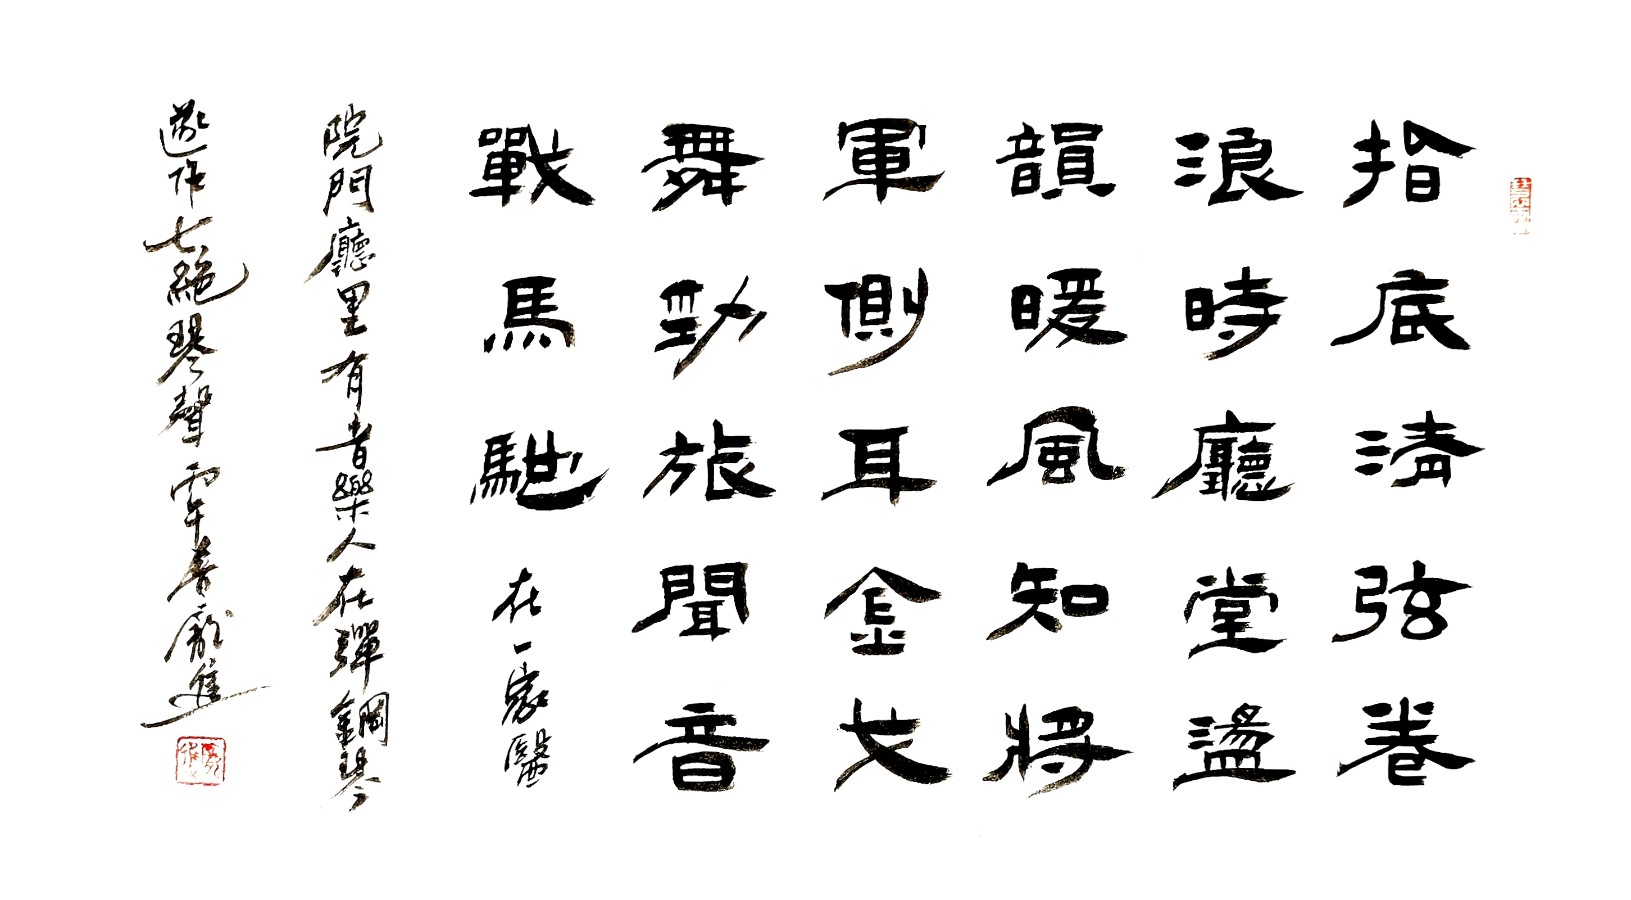 指底清弦卷
浪時廳堂盪
韻暖風知將
軍側耳金戈
舞勁旅聞音
戰馬馳
在一家醫
院門廳里有音樂人在彈鋼琴
遂作七絕琴聲 春龐進